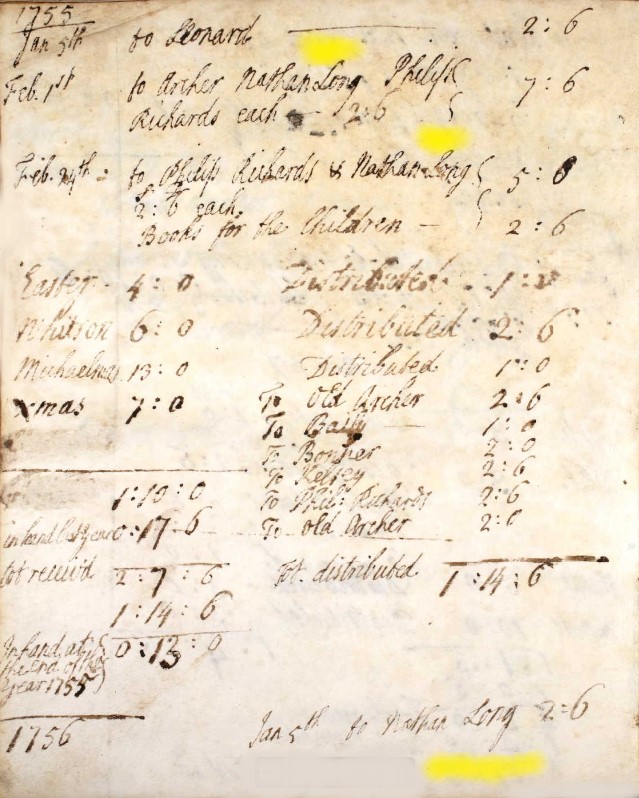 1755
Jan 5th to Leonard 2:6
Feb. 1st to Archer Nathan Long Philip 7:6
Richards each 2:6
Feb. 24th to Philip Richards & Nathan Long 5:0
2:6 each.
Books for the Children — 2:6
Easter 4:0 Distributed 1:
Whitson 6:0 Distributed 2:6
Michaelmas 13:0 Distributed 1:0
Xmas 7:0 To Old Archer 2:6
To 1:0
To Bonner 2:0
To Kelsey 2:6
1:10:0 To Phil: Richards 2:6
in hand last year 0:17:6 To old Archer 2:0
tot receivd 2:7:6 Tot. distributed 1:14:6
1:14:6
In hand at 0:13:0
the end of the
year 1755
1756 Jan 5th to Nathan Long 2:6